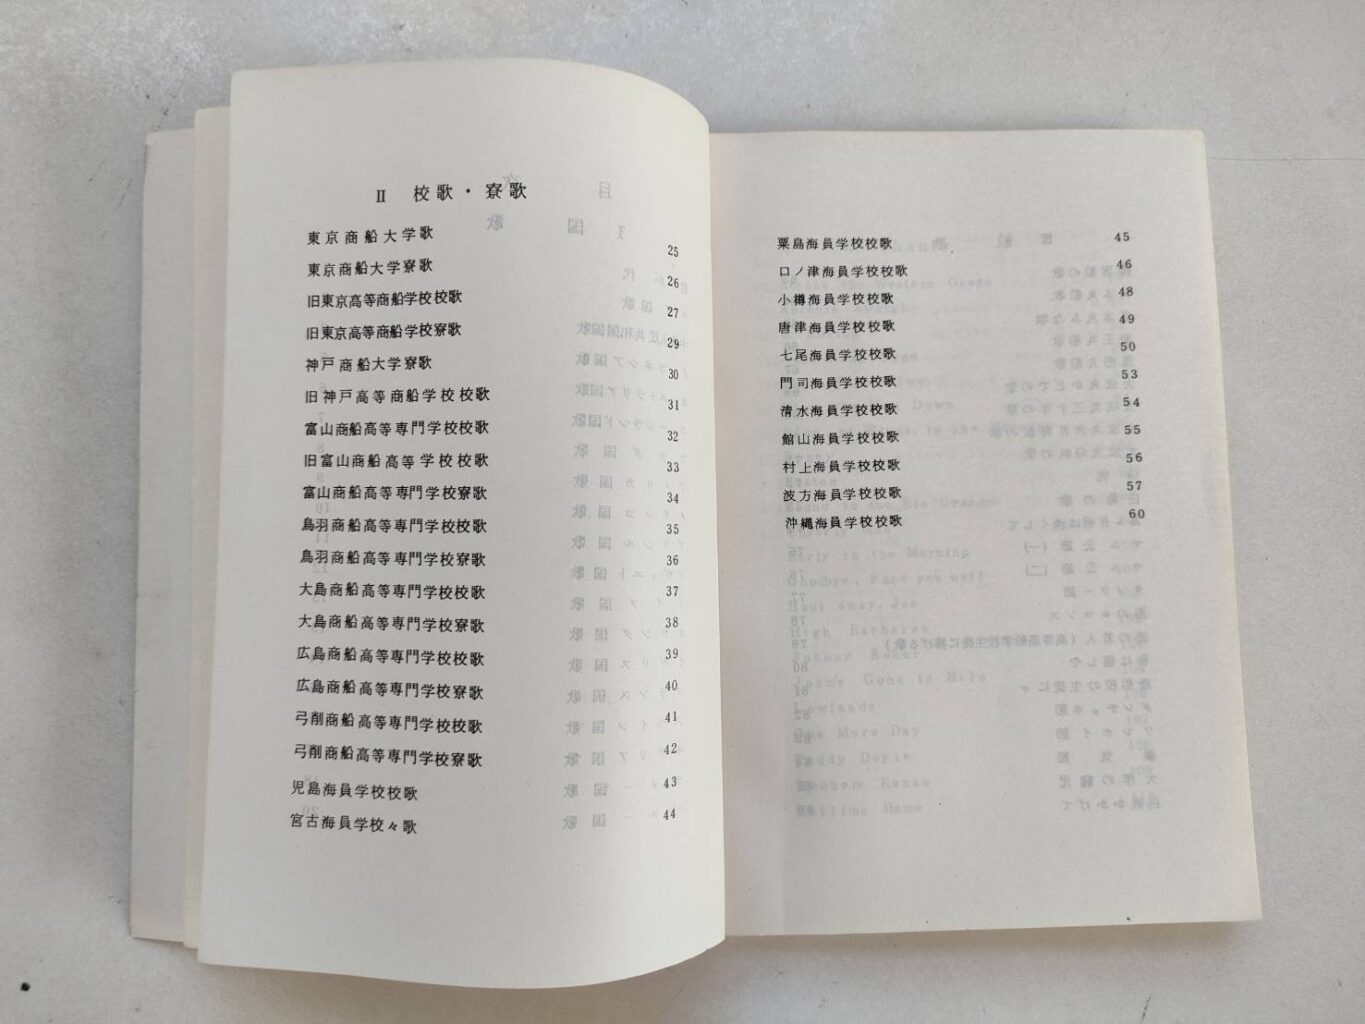 II 校歌・寮歌
東京商船大学歌 25
東京商船大学寮歌 26
旧東京高等商船学校校歌 27
旧東京高等商船学校寮歌 29
神戸商船大学寮歌 30
旧神戸高等商船学校校歌 31
富山商船高等専門学校校歌 32
旧富山商船高等学校校歌 33
富山商船高等専門学校寮歌 34
鳥羽商船高等専門学校校歌 35
鳥羽商船高等専門学校寮歌 36
大島商船高等専門学校校歌 37
大島商船高等専門学校寮歌 38
広島商船高等専門学校校歌 39
広島商船高等専門学校寮歌 40
弓削商船高等専門学校校歌 41
弓削商船高等専門学校寮歌 42
児島海員学校校歌 43
宮古海員学校々歌 44
粟島海員学校校歌 45
口ノ津海員学校校歌 46
小樽海員学校校歌 48
唐津海員学校校歌 49
七尾海員学校校歌 50
門司海員学校校歌 53
清水海員学校校歌 54
館山海員学校校歌 55
村上海員学校校歌 56
波方海員学校校歌 57
沖縄海員学校校歌 60
Early in the Morning
Goodbye, Fare you well
Haul away, Joe
High Barbaree
John's Gone to Hilo
Lowlands
One More Day
Paddy Doyle